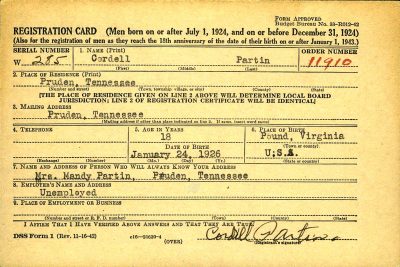 FORM APPROVED
Budget Bureau No. 33-R012-42
REGISTRATION CARD (Men born on or after July 1, 1924, and on or before December 31, 1924)
(Also for the registration of men as they reach the 18th anniversary of the date of their birth on or after January 1, 1943.)
SERIAL NUMBER 1. NAME (Print) ORDER NUMBER
W 285 Cordell Partin 11910
(First) (Middle) (Last)
2. PLACE OF RESIDENCE (Print)
Pruden, Tennessee
(Number and street) (Town, township, village, or city) (County) (State)
[THE PLACE OF RESIDENCE GIVEN ON LINE 2 ABOVE WILL DETERMINE LOCAL BOARD
JURISDICTION; LINE 2 OF REGISTRATION CERTIFICATE WILL BE IDENTICAL]
3. MAILING ADDRESS
Pruden, Tennessee
(Mailing address if other than place indicated on line 2. If same, insert word same)
4. TELEPHONE 5. AGE IN YEARS 6. PLACE OF BIRTH
18 Pound, Virginia
DATE OF BIRTH (Town or county)
January 24, 1926 U.S.A.
(Exchange) (Number) (Mo.) (Day) (Yr.) (State or country)
7. NAME AND ADDRESS OF PERSON WHO WILL ALWAYS KNOW YOUR ADDRESS
Mrs. Mandy Partin, Pruden, Tennessee
8. EMPLOYER'S NAME AND ADDRESS
Unemployed
9. PLACE OF EMPLOYMENT OR BUSINESS
(Number and street or R. F. D. number) (Town) (County) (State)
I AFFIRM THAT I HAVE VERIFIED ABOVE ANSWERS AND THAT THEY ARE TRUE.
Cordell Partin
DSS Form 1 (Rev. 11-16-42) (OVER) (Registrant's signature)